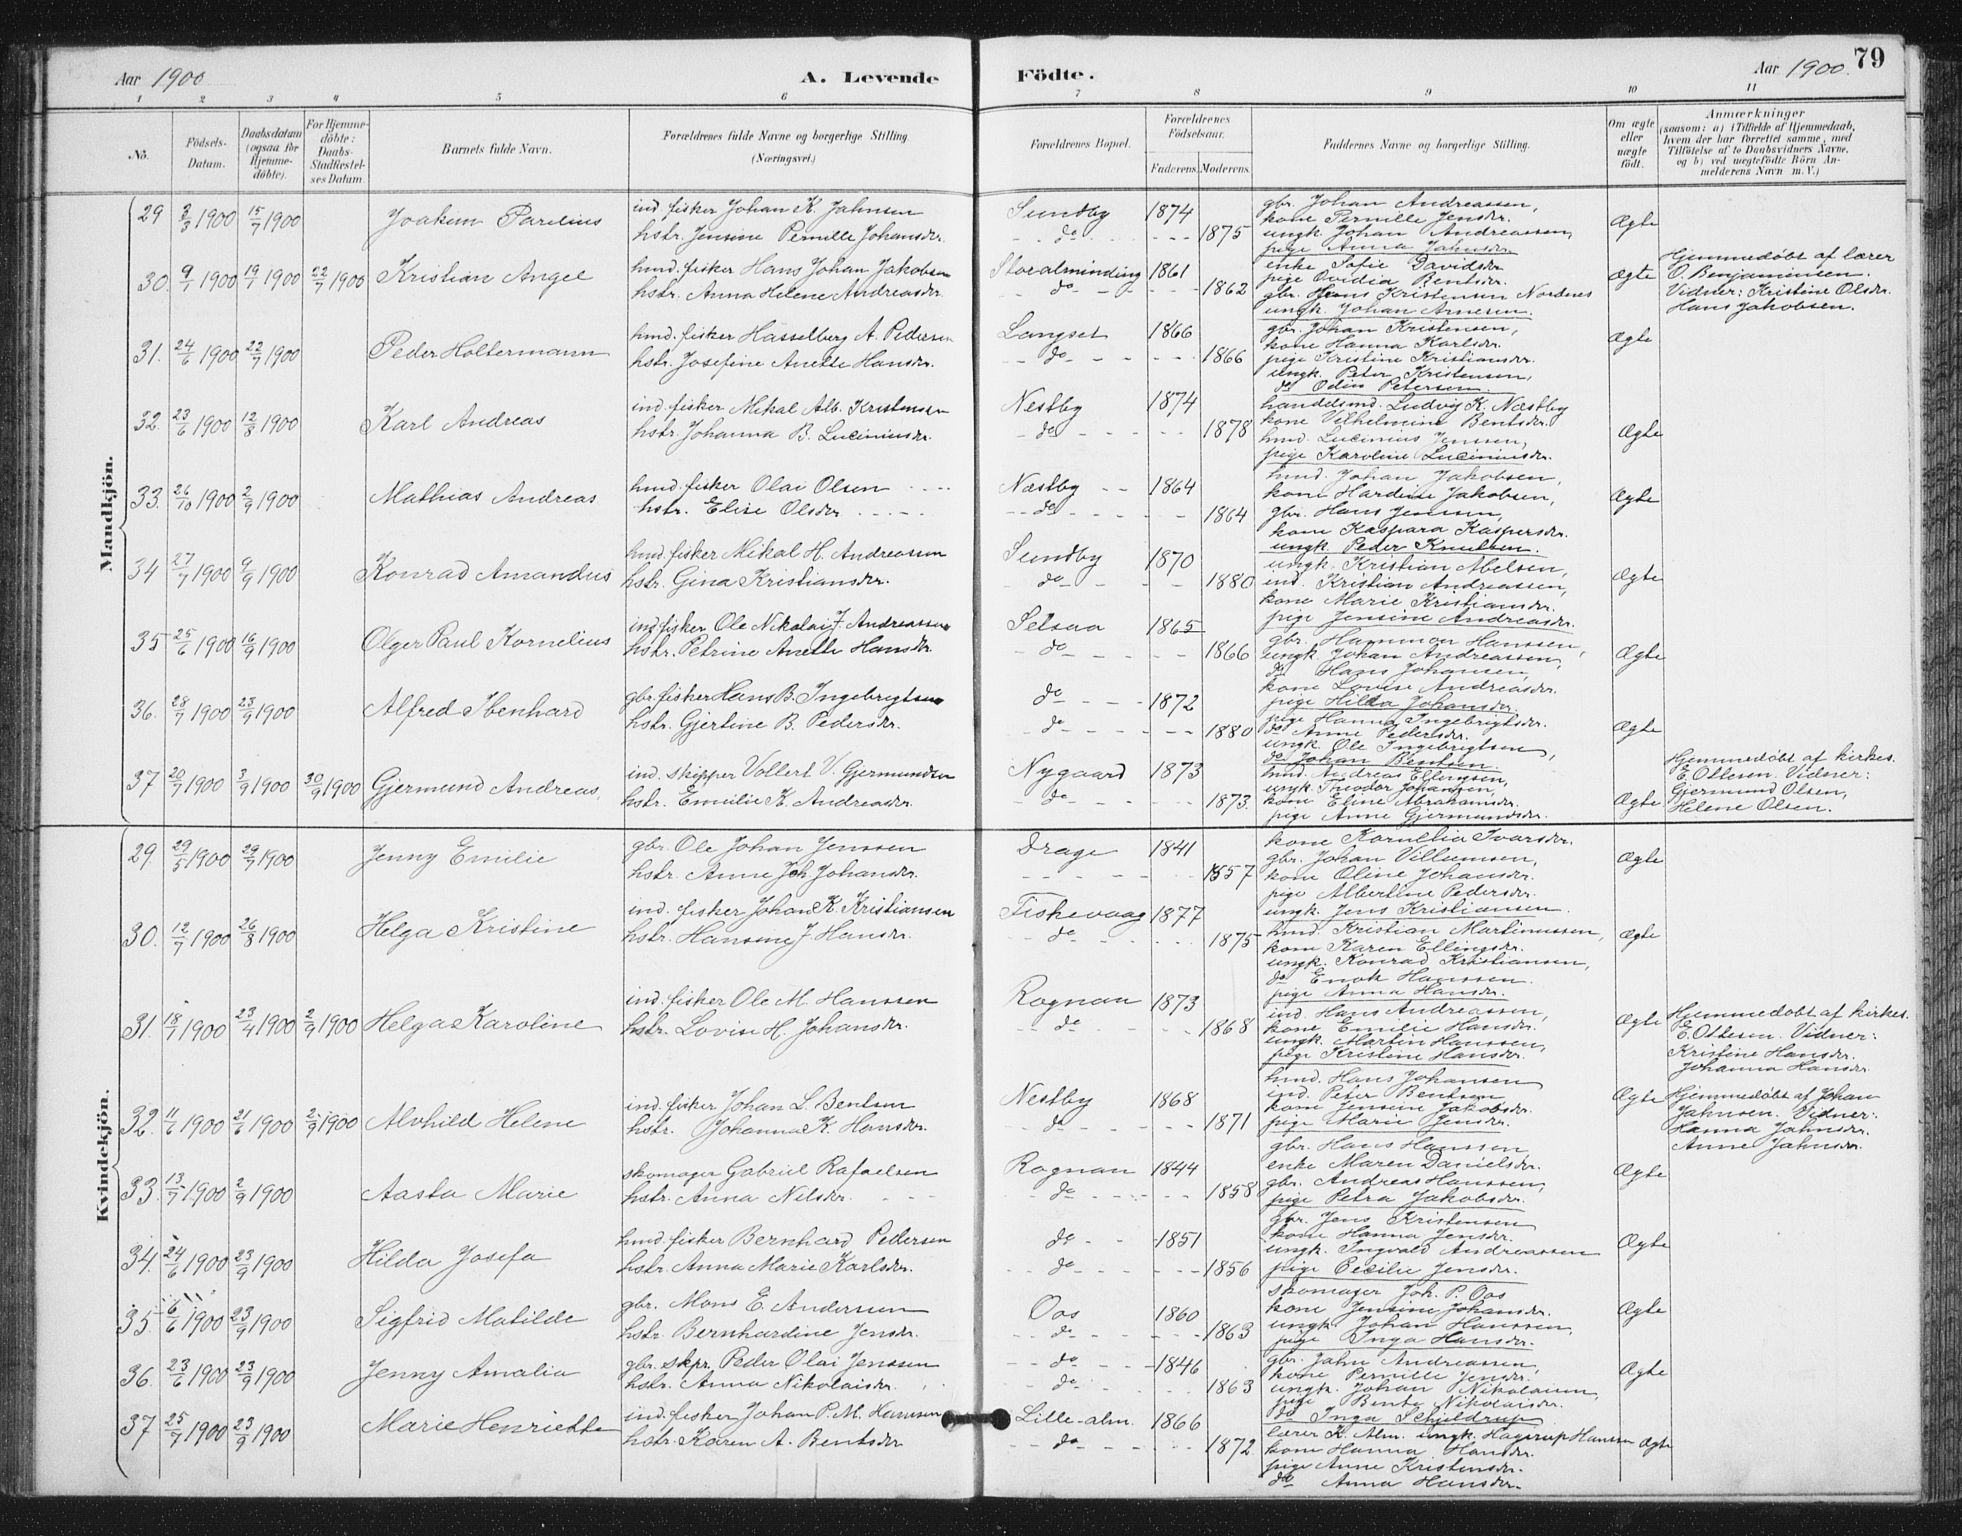 Aar 1900
A. Levende
Födte.
Aar 1900.
79
1 2 3 4 5 6 7 8 9 10 11
No.
Födsels-
Datum.
Daabsdatum
(ogsaa for
Hjemme-
döbte).
For Hjemme-
döbte:
Daabs-
Stadfæstel-
ses Datum.
Barnets fulde Navn.
Forældrenes fulde Navne og borgerlige Stilling
(Næringsvei.)
Forældrenes Bopæl.
Forældrenes
Födselsaar.
Faderens. Moderens.
Faddernes Navne og borgerlige Stilling.
Om ægte
eller
uægte
födt.
Anmærkninger
(saasom: a) i Tilfælde af Hjemmedaab,
hvem der har forrettet samme, med
Tilföielse af to Daabsvidners Navne,
og b) ved uegtefödte Börn An-
melderens Navn m. V.)
Mandkjön.
29 3/3 1900 15/7 1900 Joakum Parelius
ind. fisker Johan K. Jahnsen
hstr. Jensine Pernille Johansdr.
Sundby 1874
do 1875
gbr. Johan Andreassen,
kone Pernille Jensdr.
ungk. Johan Andreassen,
pige Anna Jahnsdr.
Ægte
30. 9/7 1900 19/7 1900 22/7 1900 Kristian Angel
hmd. fisker Hans Johan Jakobsen
hstr. Anna Helene Andreasdr.
Storalminding 1861
do 1862
enke Sofie Davidsdr
pige Ovidia Bentsdr.
gbr. Hans Kristensen Nordnes
ungk. Johan Arnesen.
Ægte
Hjemmedøbt af lærer
O. Benjaminsen.
Vidner: Kristine Olsdr.
Hans Jakobsen.
31. 24/6 1900 22/7 1900 Peder Holtermann
hmd. fisker Hasselberg A. Pedersen
hstr. Josefine Anette Hansdr.
Langset 1866
do 1866
gbr. Johan Kristensen,
kone Hanna Karlsdr.
pige Kristine Kristiansdr.
ungk. Peter Kristensen,
do Odin Petersen.
Ægte
32. 23/6 1900 12/8 1900 Karl Andreas
ind. fisker Mikal Alb. Kristensen
hstr. Johanna B. Luciniusdr.
Nestby 1874
do 1878
handelsmd. Ludvig K. Næstby
kone Vilhelmine Bentsdr.
hmd. Lucinius Jenssen,
pige Karoline Luciniusdr.
Ægte
33. 26/10 1900 2/9 1900 Mathias Andreas
hmd. fisker Olai Olsen
hstr. Elise Olsdr
Næstby 1864
do 1864
hmd. Johan Jakobsen,
kone Hardine Jakobsen,
gbr. Hans Jensen,
kone Kaspara Kaspersdr.
ungk. Peder Knutsen.
Ægte
34 27/7 1900 9/9 1900 Konrad Amandus
hmd. fisker Mikal H. Andreassen
hstr. Gina Kristiansdr.
Sundby 1870
do 1880
ungk. Kristian Abelsen,
ind. Kristian Andreassen,
kone Marie Kristiansdr.
pige Jensine Andreasdr.
Ægte
35 25/6 1900 16/9 1900 Olger Paul Kornelius
ind. fisker Ole Nikolai J. Andreassen
hstr. Petrine Anette Hansdr.
Setsaa 1865
do 1866
gbr. Hammon Hanssen,
ungk. Johan Andreassen,
do Hans Johansen,
kone Lovise Andreasdr.
pige Hilda Johansdr.
Ægte
36. 28/7 1900 23/9 1900 Alfred Ibenhard
gbr. fisker Hans B. Ingebrigtsen
hstr. Gjertine B. Pedersdr.
do 1872
do 1880
pige Hanna Ingebrigtsdr.
do Anne Pedersdr.
ungk. Ole Ingebrigtsen,
do Johan Bentsen.
Ægte
37 20/7 1900 3/9 1900 30/9 1900 Gjermund Andreas.
ind. skipper Vollert V. Gjermundsen
hstr. Emilie K. Andreasdr.
Nygaard 1873
do 1873.
hmd. Andreas Ellingsen,
ungk. Theodor Johansen,
kone Eline Abrahamsdr.
pige Anne Gjermundsdr.
Ægte
Hjemmedøbt af kirkes.
E. Ottesen. Vidner:
Gjermund Olsen,
Helene Olsen.
Kvindekjön.
29. 29/5 1900 29/7 1900 Jenny Emilie
gbr. Ole Johan Jenssen
hstr. Anne Joh. Johansdr.
Drage 1841
1857
kone Kornelia Ivarsdr.
gbr. Johan Villumsen,
kone Oline Johansdr.
pige Albertine Pedersdr.
ungk. Jens Kristiansen.
Ægte
30. 12/7 1900 26/8 1900 Helga Kristine
ind. fisker Johan K. Kristiansen
hstr. Hansine J. Hansdr.
Fiskevaag 1877
do 1875
hmd. Kristian Martinussen,
kone Karen Ellingsdr.
ungk. Konrad Kristiansen,
do Enok Hanssen.
pige Anna Hansdr.
Ægte
31. 18/7 1900 23/4 1900 2/9 1900 Helga Karoline
ind. fisker Ole M. Hanssen
hstr. Lovise H. Johansdr.
Rognan 1873
do 1868
ind. Hans Andreassen,
kone Emilie Hansdr.
ungk. Martin Hanssen,
pige Kristine Hansdr.
Ægte
Hjemmedøbt af kirkes.
E. Ottesen. Vidner:
Kristine Hansdr.
Johanna Hansdr.
32. 11/6 1900 21/6 1900 2/9 1900 Alvhild Helene
ind. fisker Johan L. Bentsen
hstr. Johanna K. Hansdr.
Nestby 1868
do 1871
hmd. Hans Johansen
ind. Peter Bentsen
kone Jensine Jakobsdr.
pige Marie Jensdr.
Ægte
Hjemmedøbt af Johan
Jahnsen. Vidner:
Hanna Jahnsdr.
Anne Jahnsdr.
33. 13/7 1900 2/9 1900 Aasta Marie
skomager Gabriel Rafaelsen
hstr. Anna Nilsdr.
Rognan 1844
do 1858
gbr. Hans Hanssen
enke Maren Danielsdr.
gbr. Andreas Hanssen,
pige Petra Jakobsdr.
Ægte
34. 24/6 1900 23/9 1900 Hilda Josefa
hmd. fisker Bernhard Pedersen
hstr. Anna Marie Karlsdr.
do 1851
do 1856
gbr. Jens Kristensen
kone Hanna Jensdr.
ungk. Ingvald Andreassen
pige Cecilie Jensdr.
Ægte
35 6/6 1900 23/9 1900 Sigfrid Matilde
gbr. Mons E. Andersen
hstr. Bernhardine Jensdr.
Oos 1860
do 1863
skomager Joh. P. Oos
kone Jensine Johansdr.
ungk. Johan Hanssen,
pige Inga Hansdr.
Ægte
36. 23/6 1900 23/9 1900 Jenny Amalia
gbr. skpr. Peder Olai Jenssen
hstr. Anna Nikolaisdr.
do 1846
do 1863
gbr. Jahn Andreassen,
kone Pernille Jensdr.
ungk. Johan Nikolaisen,
pige Bente Nikolaisdr.
do Inga Schjeldrup
Ægte
37 25/7 1900 23/9 1900 Marie Henriette
ind. fisker Johan P. M. Hanssen
hstr. Karen A. Bentsdr
Lille-alm. 1866
do 1872
lærer K. Alm. ungk. Hagerup Hanssen
kone Hanna Hansdr.
pige Anne Kristensdr.
do Anna Hansdr.
Ægte